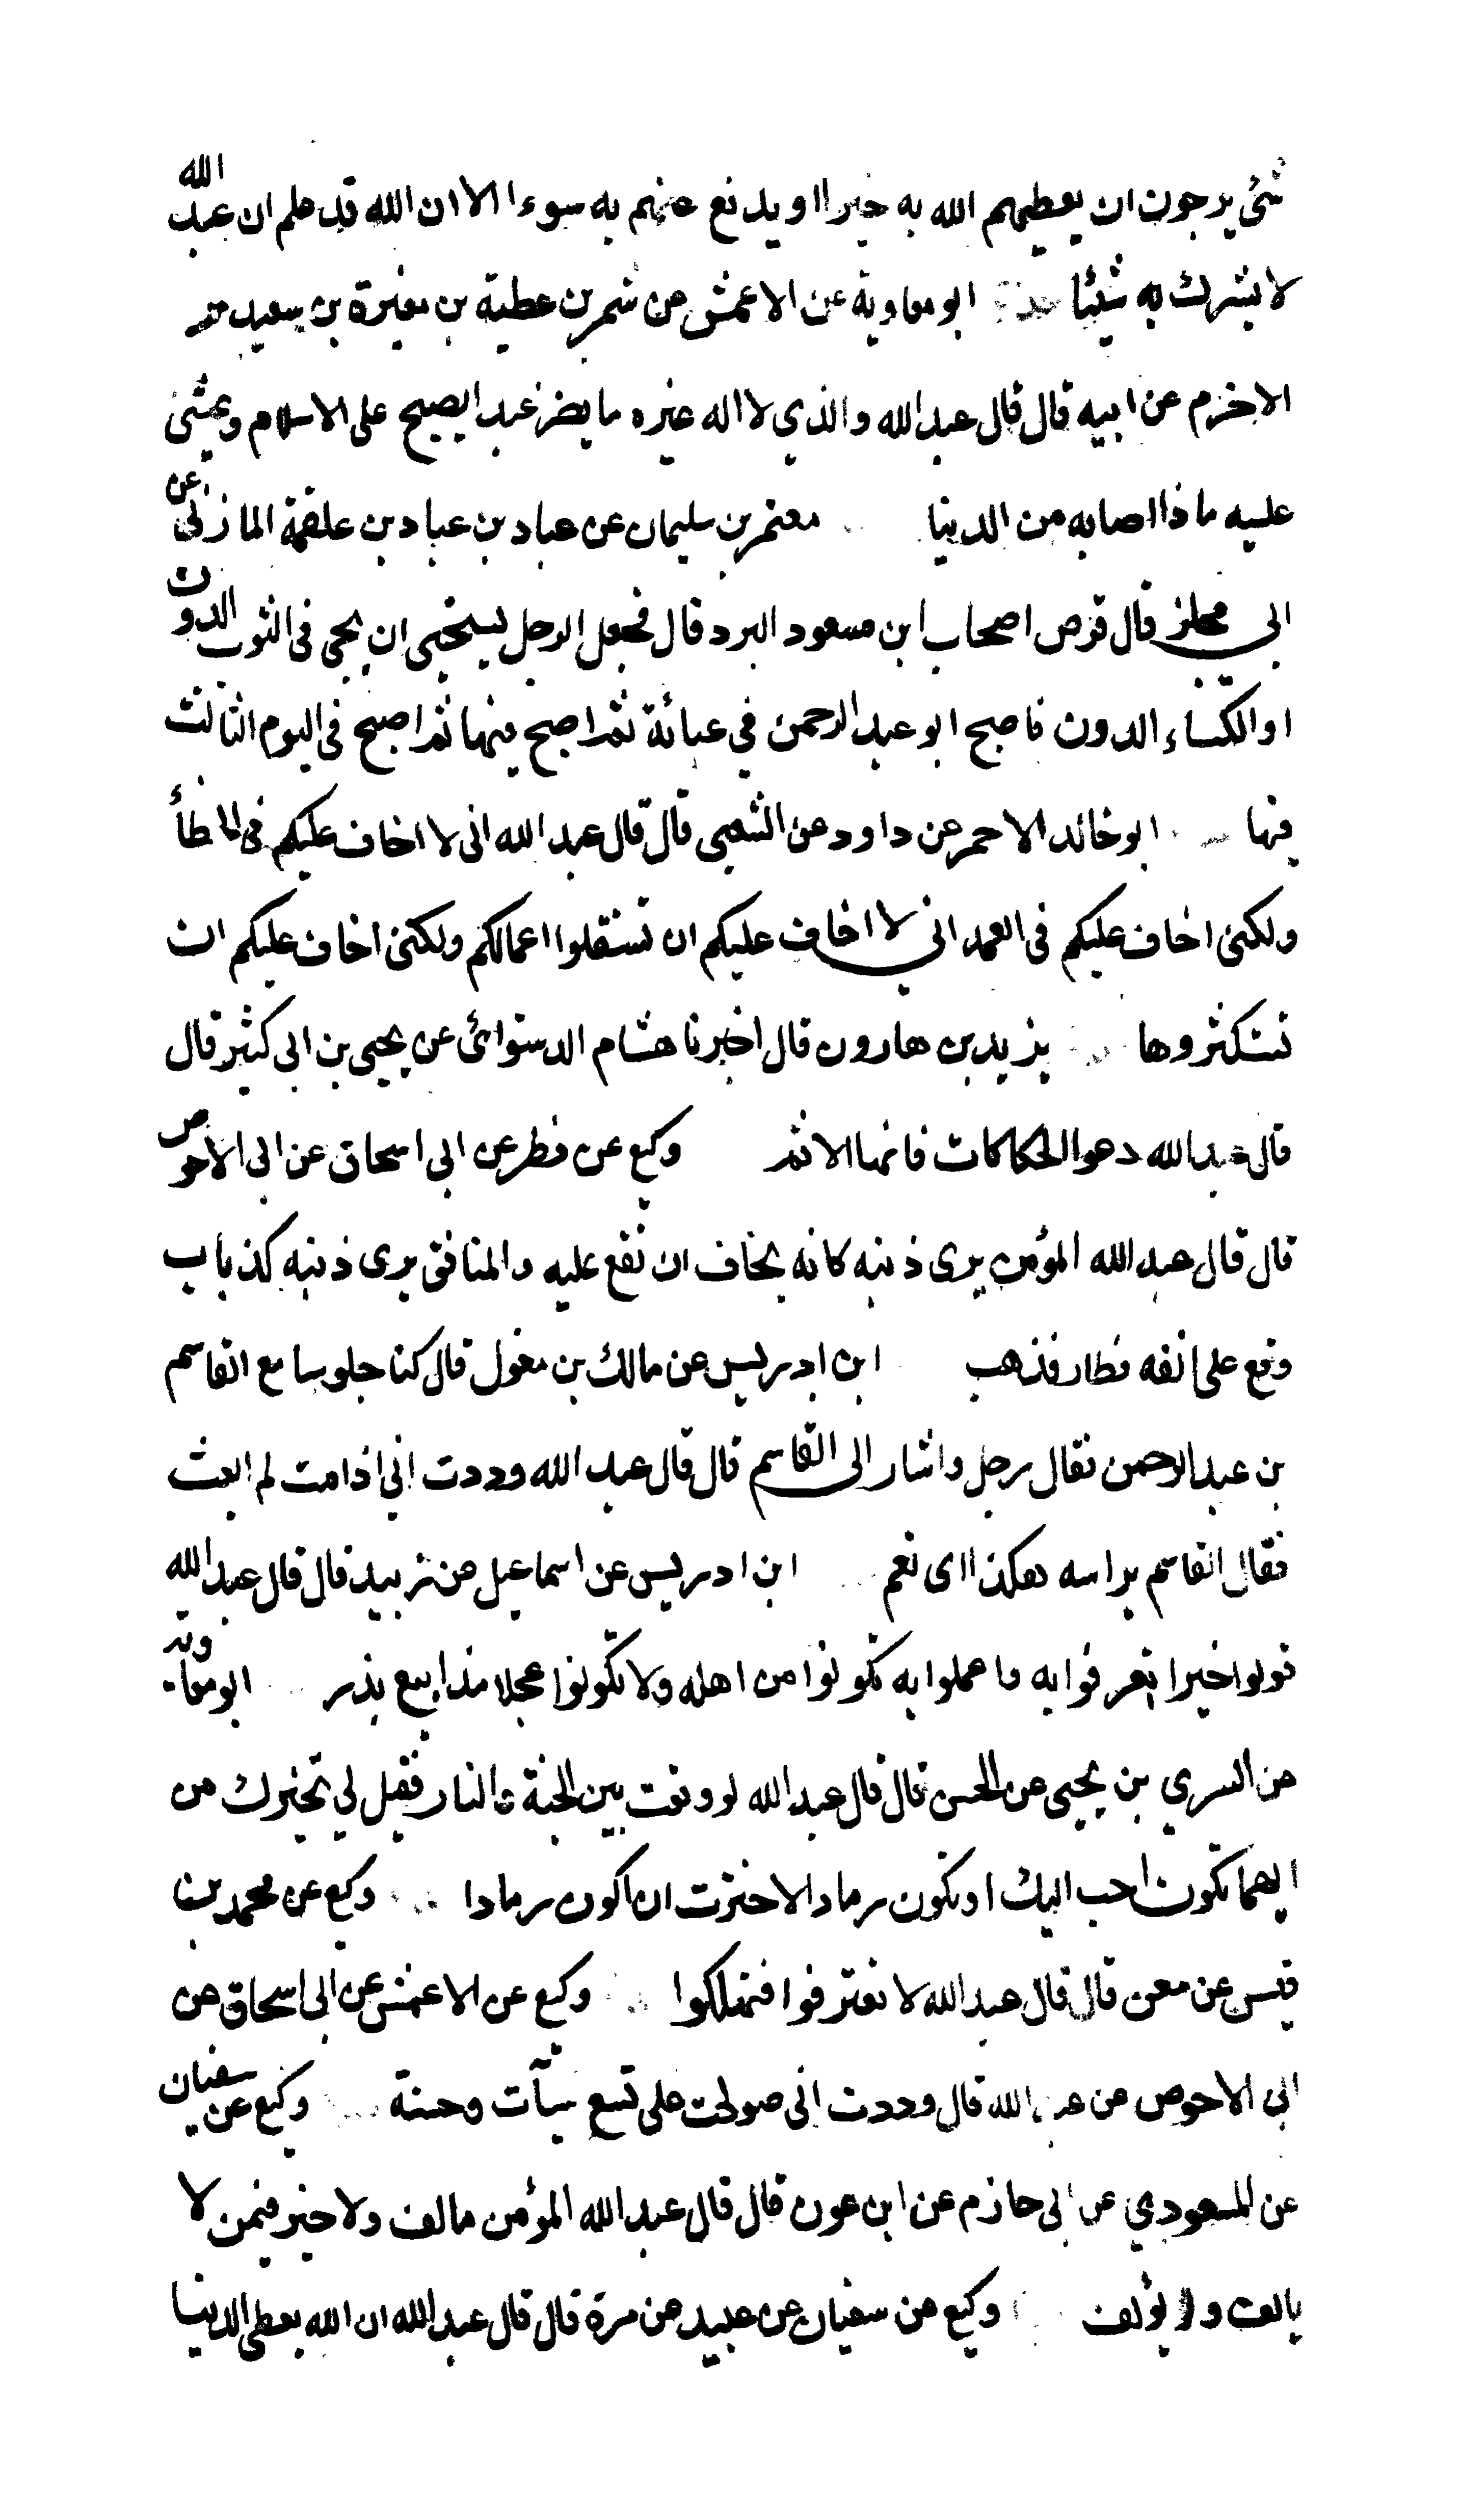 شئ يرجون ان يعطيهم الله به خيرا او يدفع عنهم به سوءا الا ان الله قد علم ان عبد الله
لا يشرك به شيئا حدثنا ابو معاوية عن الاعمش عن شمر بن عطية بن مغيرة بن سعيد بن
الاخرم عن ابيه قال قال عبد الله والذي لا اله غيره ما يضر عبد ا يصبح على الاسلام ويمشي
عليه ماذا اصابه من الدنيا معتمر بن سليمان عن عباد بن عباد بن علقمة المازني عن
ابي مجلز قال قرص اصحاب ابن مسعود البرد قال فجعل الرجل يستحيى ان يجي في الثوب الدون
او الكساء الدون فاصبح ابو عبد الرحمن في عبائة ثم اصبح فيها ثم اصبح في اليوم الثالث
فيها ابو خالد الاحمر عن داود عن الشعبي قال قال عبد الله انى لا اخاف عليكم في الخطأ
ولكنى اخاف عليكم في العمد اني لا اخاف عليكم ان تستقلوا اعمالكم ولكنى اخاف عليكم ان
تستكثروها يزيد بن هارون قال اخبرنا هشام الدستوائى عن يحيى بن ابى كثير قال
قال عبد الله دعوا الحكاكات فانها الاثم وكيع عن فطر عن ابى اسحاق عن ابى الاحوص
قال قال عبد الله المؤمن يرى ذنبه كانه يخاف ان تقع عليه والمنافق يرى ذنبه كذباب
وقع على انفه فطار فذهب ابن ادريس عن مالك بن مغول قال كنا جلوسا مع القاسم
بن عبد الرحمن فقال رجل واشار الى القاسم قال قال عبد الله وددت اني اذا مت لم ابعث
فقال القاسم براسه هكذا اى نعم ابن ادريس عن اسماعيل عن زبيد قال قال عبد الله
قولوا خيرا تعرفوا به واعملوا به تكونوا من اهله ولا تكونوا عجلا مذابيع بذر ابو معاوية
عن السري بن يحيى عن الحسن قال قال عبد الله لو وقفت بين الجنة والنار فقيل لي نخيرك من
ايهما تكون احب اليك او تكون رمادا لاخترت ان اكون رمادا وكيع عن محمد بن
قيس عن معن قال قال عبد الله لا تفترقوا فتهلكوا وكيع عن الاعمش عن ابى اسحاق عن
ابى الاحوص عن عبد الله قال وددت انى صولحت على تسع سيآت وحسنة وكيع عن سفيان
عن المسعودي عن ابى حازم عن ابن عون قال قال عبد الله المؤمن مالف ولا خير فيمن لا
يالف ولا يؤلف وكيع عن سفيان عن عبيد عن مرة قال قال عبد الله ان الله يعطى الدنيا